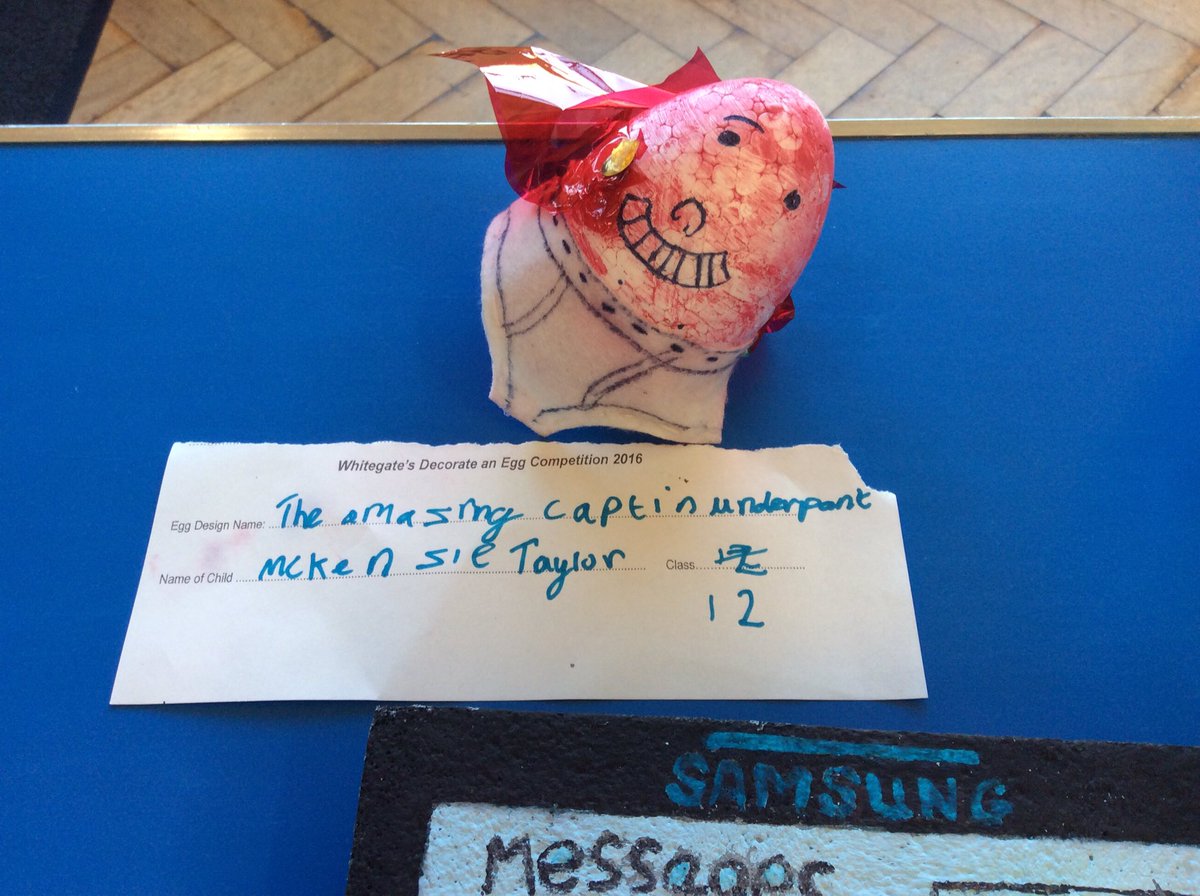 Whitegate's Decorate an Egg Competition 2016
Egg Design Name: The amasing captin underpant
Name of Child McKensie Taylor Class
12
SAMSUNG
Messages